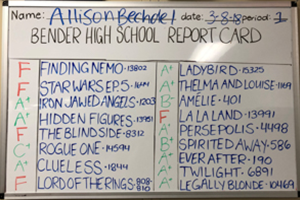 Name: Allison Bechdel date: 3-8-18 period: 1
BENDER HIGH SCHOOL REPORT CARD
F FINDING NEMO · 13802
F STAR WARS EP.5 · 1644
A+ IRON JAWED ANGELS · 1203
A+ HIDDEN FIGURES · 13951
F THE BLIND SIDE · 8312
C+ ROGUE ONE · 14594
A+ CLUELESS · 1844
F LORD OF THE RINGS · 808-810
A+ LADYBIRD · 15325
A+ THELMA AND LOUISE · 1169
B+ AMÉLIE · 401
F LA LA LAND · 13991
A+ PERSEPOLIS · 4498
B+ SPIRITED AWAY · 586
A+ EVER AFTER · 190
A+ TWILIGHT · 6891
A+ LEGALLY BLONDE · 10469